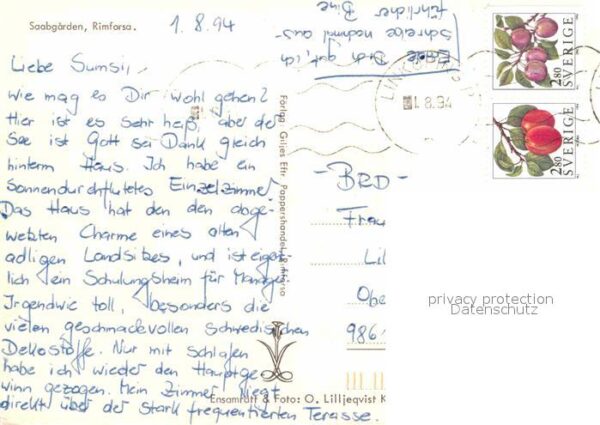 Saabgården, Rimforsa.
1.8.94
Liebe Sumsi,
wie mag es Dir wohl gehen?
Hier ist es sehr heiß, aber der
See ist Gott sei Dank gleich
hinterm Haus. Ich habe ein
Sonnendurchflutetes Einzelzimmer
Das Haus hat den den abge-
wetzten Charme eines alten
adligen Landsitzes, und ist eigent
lich ein Schulungsheim für Manager
Irgendwie toll, besonders die
vielen geschmackvollen schwedischen
Dekostoffe. Nur mit Schlafen
habe ich wieder den Hauptge-
winn gezogen. Mein Zimmer liegt
direkt über der stark frequentierten Terasse.
Dir gut, ich
schreibe nochmal aus-
führlicher Bine
Förlag: Griljes Eftr. Pappershandel, Rimforsa
Ensamrätt & Foto: O. Lilljeqvist K
- BRD -
Frau
Lil
Obe
986
1.8.94
SVERIGE
2.80
SVERIGE
2.80
privacy protection
Datenschutz